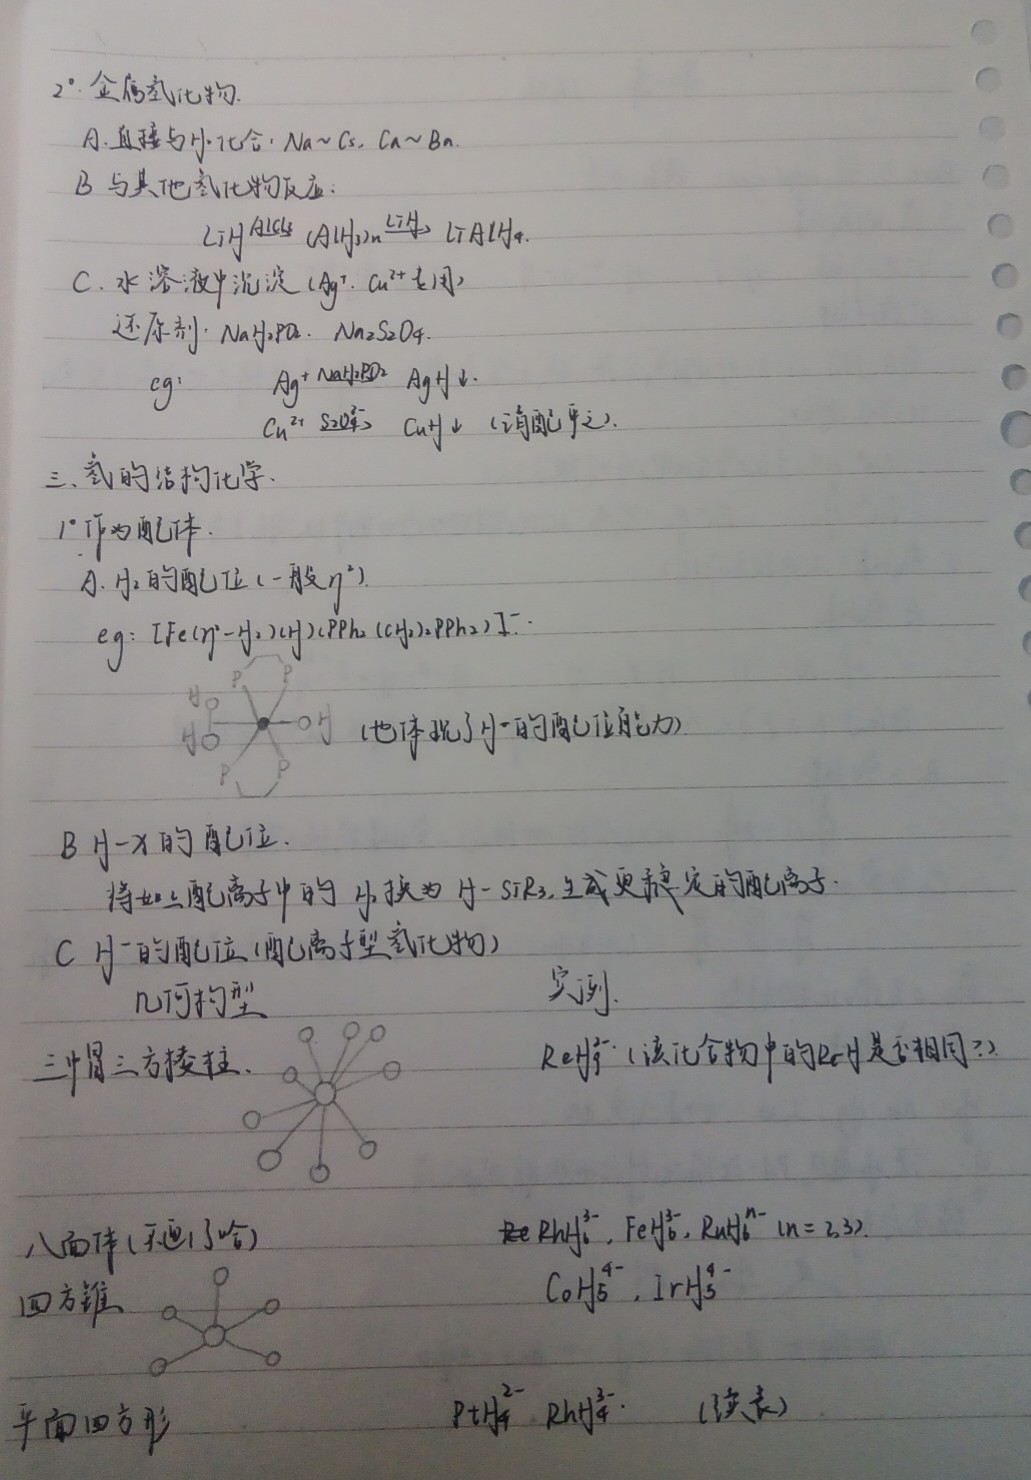 2°. 金属氢化物.
A. 直接与H₂化合. Na~Cs. Ca~Ba.
B 与其他氢化物反应:
LiH AlCl₃→ (AlH₃)n LiH→ LiAlH₄.
C. 水溶液中沉淀 (Ag⁺. Cu²⁺专用)
还原剂. NaH₂PO₂. Na₂S₂O₄.
eg: Ag⁺ NaH₂PO₂ AgH↓.
Cu²⁺ S₂O₄²⁻→ CuH↓ (请配平之).
三. 氢的结构化学.
1° 作为配体.
A. H₂的配位 (一般η²).
eg: [Fe(η²-H₂)(H)(PPh₂(CH₂)₂PPh₂)]⁻.
P P
H
H H (也体现了H⁻的配位能力)
P P
B H-X的配位.
将如上配离子中的H₂换为H-SiR₃, 生成更稳定的配离子.
C H⁻的配位 (配离子型氢化物)
几何构型 实例.
三帽三方棱柱. ReH₉²⁻. (该化合物中的Re-H是否相同?)
八面体 (不画了哈) RhH₆³⁻, FeH₆³⁻, RuH₆ⁿ⁻ (n=2,3).
四方锥 CoH₅⁴⁻, IrH₅⁴⁻
平面四方形 PtH₄²⁻ RhH₄³⁻. (续表)